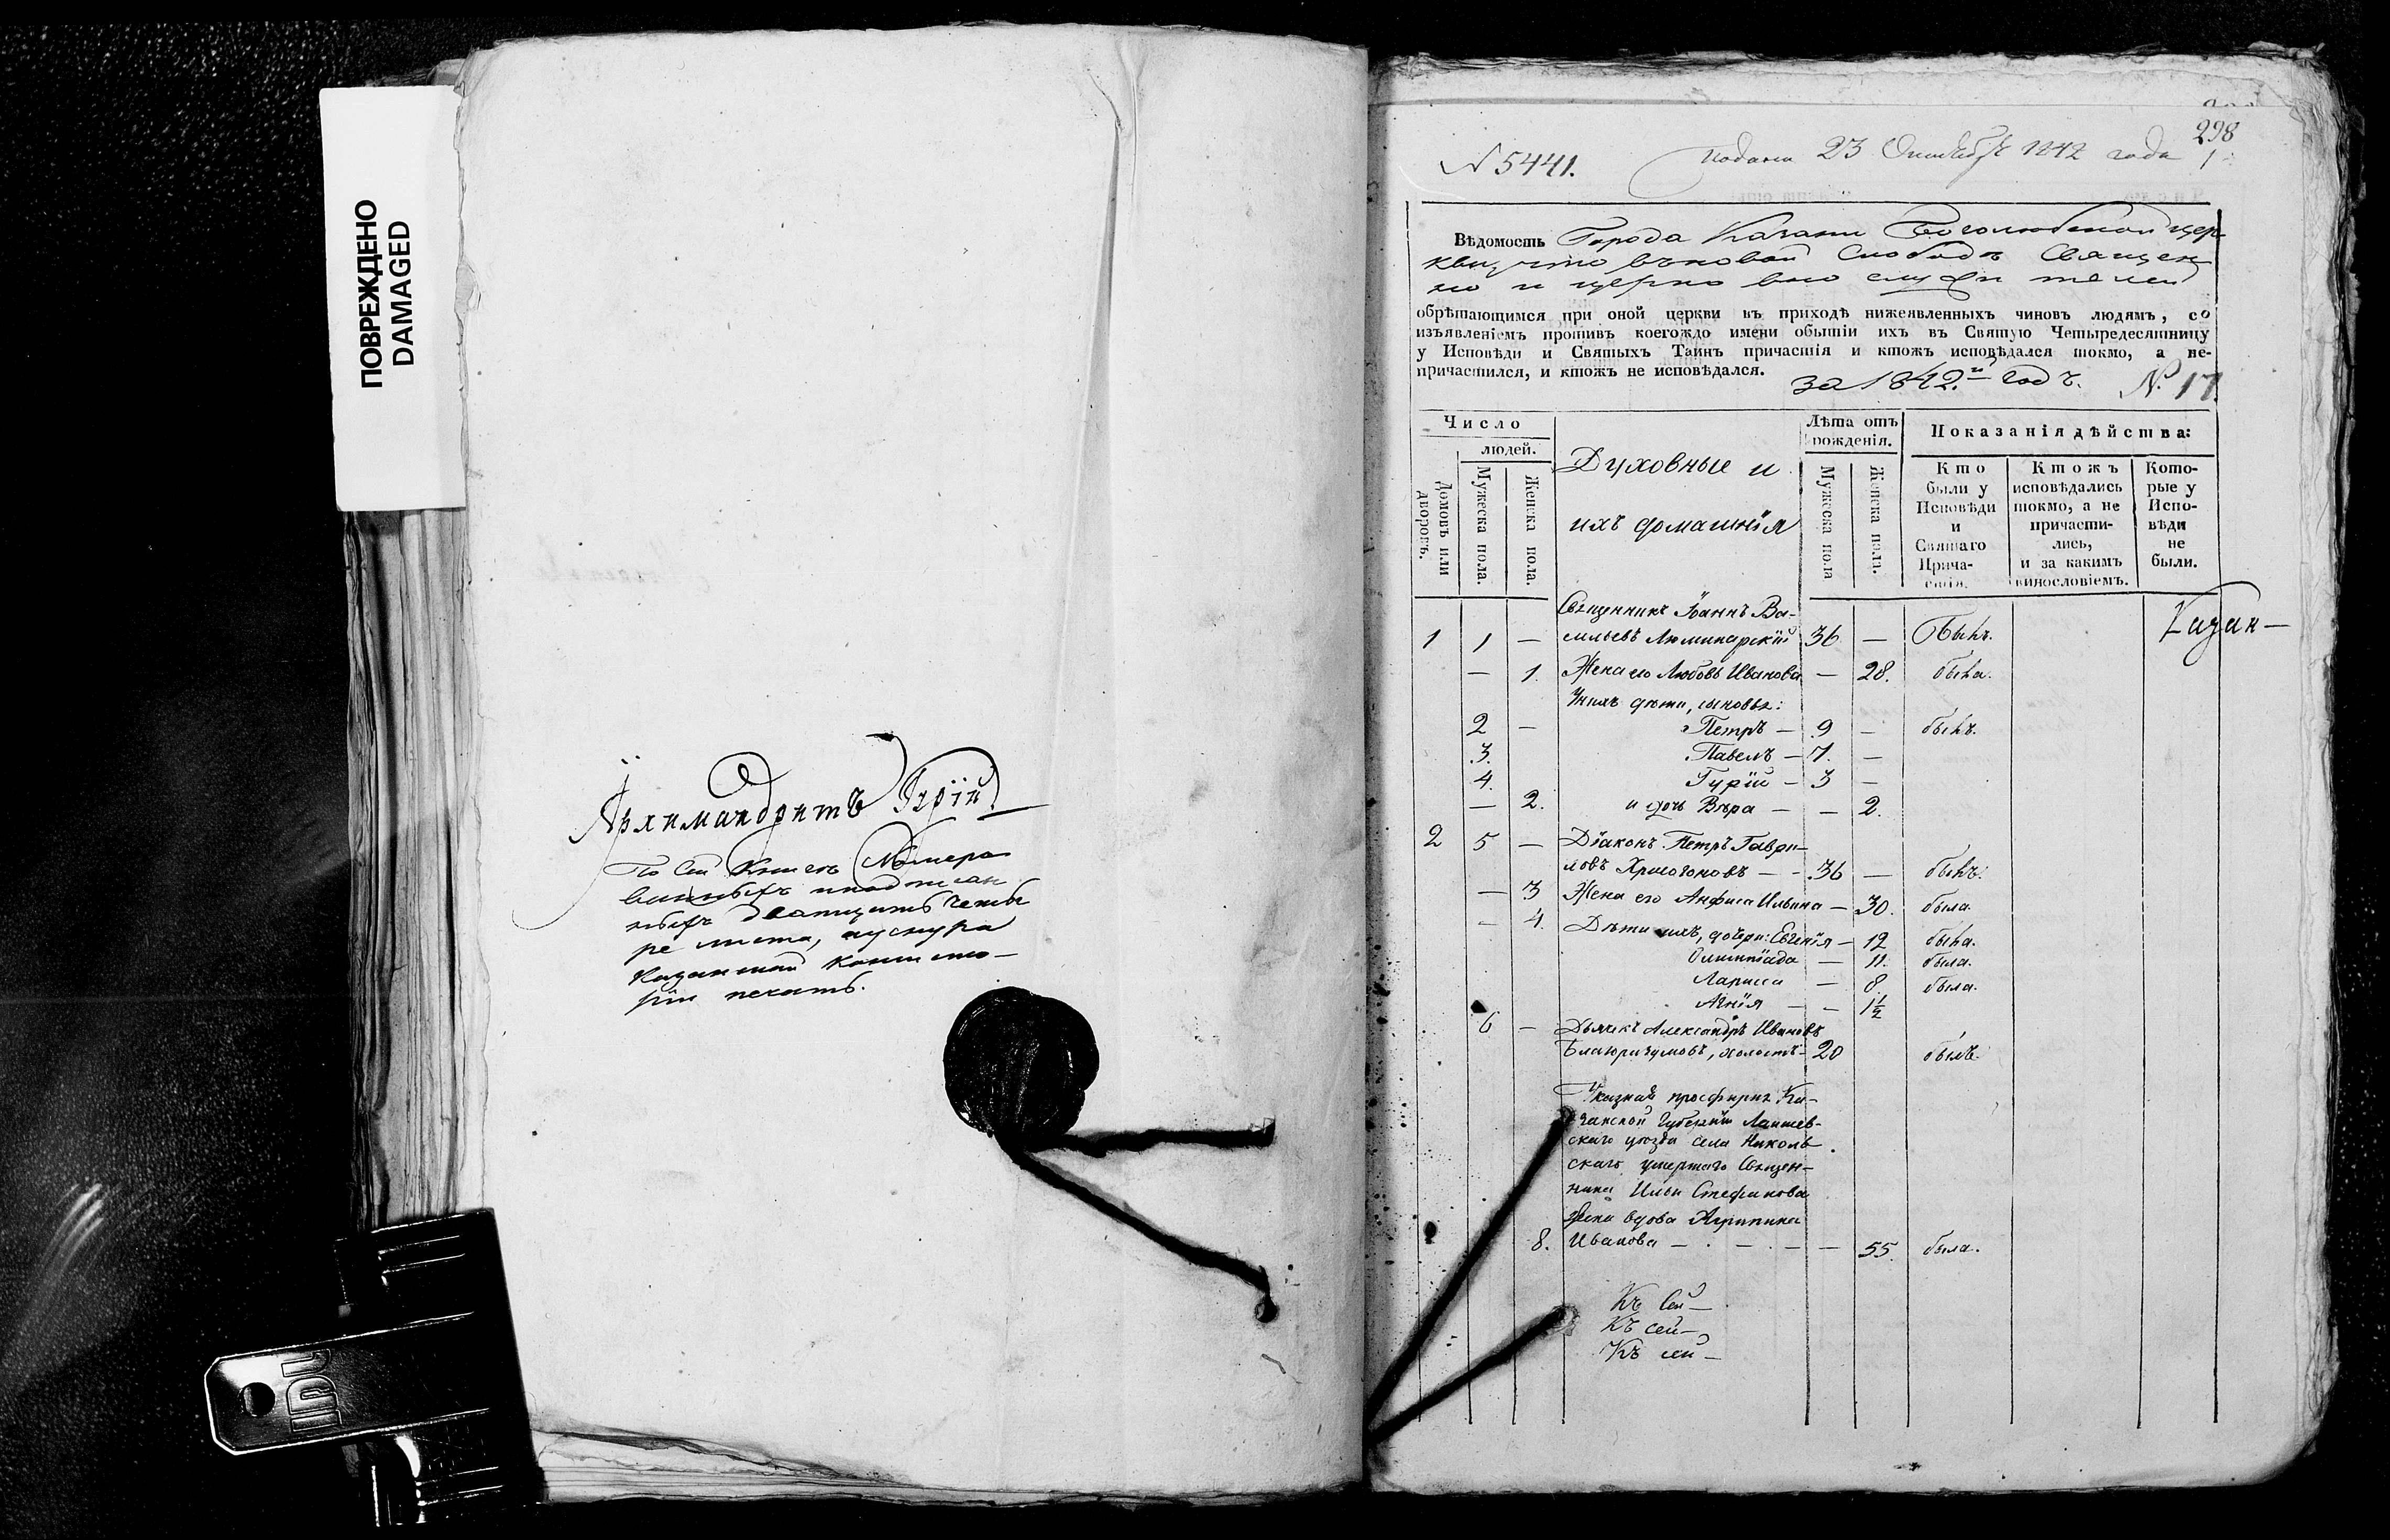 ПОВРЕЖДЕНО
DAMAGED
Архимандритъ Гурій
По сей книгѣ нумеро
ванныхъ и подписан
ныхъ двадцать четы
ре листа, а у снура
Казанской Консисто-
ріи печать.
298
N 5441.
подана 23 Октября 1842 года
1
Вѣдомость Города Казани Боголюбской цер-
кви, что въ новой Слободѣ Священ
но и церковно служителей
обрѣтающимся при оной церкви въ приходѣ нижеявленныхъ чиновъ людямъ, со
изъявленіемъ противъ коегождо имени обытіи ихъ въ Святую Четыредесятницу
у Исповѣди и Святыхъ Таинъ причастія и ктожъ исповѣдался токмо, а не-
причастился, и ктожъ не исповѣдался.
за 1842.й годъ. N. 17.
Число
людей.
Домовъ или дворовъ.
Мужеска пола.
Женска пола.
Духовные и
ихъ домашнія
Лѣта отъ
рожденія.
Мужеска пола
Женска пола.
Показанія дѣйства:
Кто
были у
Исповѣди
и
Святаго
Прича-
стія.
Ктожъ
исповѣдались
токмо, а не
причасти-
лись,
и за какимъ
винословіемъ.
Кото-
рые у
Испо-
вѣди
не
были.
Священникъ Іоаннъ Ва-
1 1 — сильевъ Люминарскій 36 — Былъ.
Казан—
— 1. Жена его Любовь Иванова — 28. была.
У нихъ дѣти, сыновья:
2 — Петръ — 9 — былъ.
3. Павелъ — 7. —
4. Гурій — 3 —
— 2. и дочь Вѣра — — 2.
2 5 — Діаконъ Петръ Гаври-
ловъ Хрисогоновъ — 36 — былъ.
— 3 Жена его Анфиса Ильина — 30. была.
— 4. Дѣти ихъ, дочери: Евгенія — 12 была.
Олимпіада — 11. была.
Лариса — 8. была.
Агнія — — 1½
6 — Дьячекъ Александръ Ивановъ
Благоразумовъ, холостъ — 20 былъ
Указная просфирня Ка-
занской Губерніи Лаишев-
скаго уѣзда села Николь
скаго умершаго Священ-
ника Ильи Стефанова
жена вдова Агрипина
8. Иванова — . — . — — 55. была.
Къ сей—
Къ сей—
Къ сей—